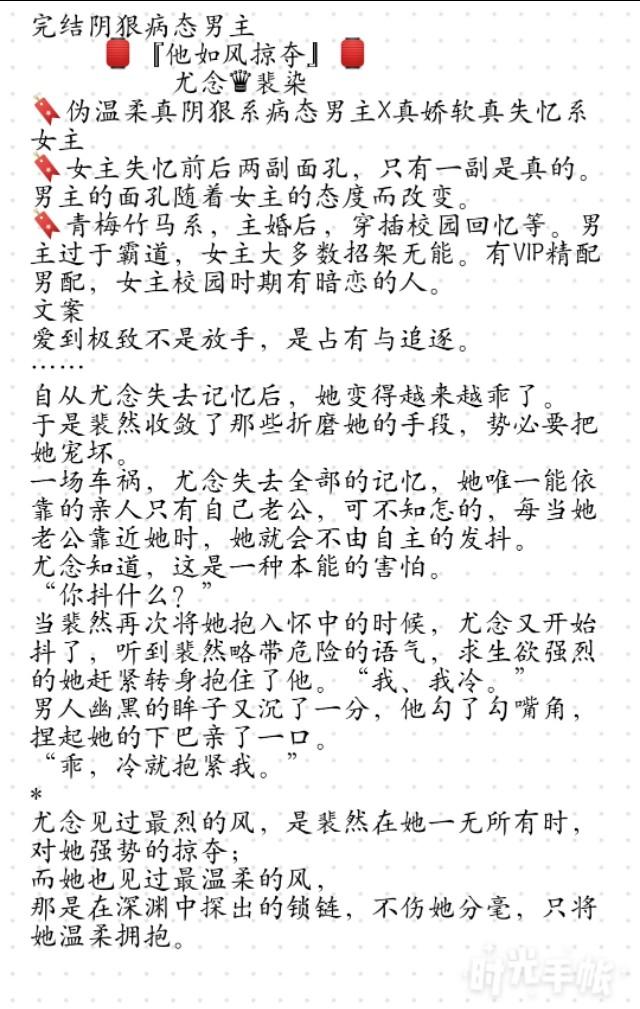 完结阴狠病态男主
『他如风掠夺』
尤念♛裴染
伪温柔真阴狠系病态男主X真娇软真失忆系
女主
女主失忆前后两副面孔，只有一副是真的。
男主的面孔随着女主的态度而改变。
青梅竹马系，主婚后，穿插校园回忆等。男
主过于霸道，女主大多数招架无能。有VIP精配
男配，女主校园时期有暗恋的人。
文案
爱到极致不是放手，是占有与追逐。
……
自从尤念失去记忆后，她变得越来越乖了。
于是裴然收敛了那些折磨她的手段，势必要把
她宠坏。
一场车祸，尤念失去全部的记忆，她唯一能依
靠的亲人只有自己老公，可不知怎的，每当她
老公靠近她时，她就会不由自主的发抖。
尤念知道，这是一种本能的害怕。
“你抖什么？”
当裴然再次将她抱入怀中的时候，尤念又开始
抖了，听到裴然略带危险的语气，求生欲强烈
的她赶紧转身抱住了他。“我、我冷。”
男人幽黑的眸子又沉了一分，他勾了勾嘴角，
捏起她的下巴亲了一口。
“乖，冷就抱紧我。”
*
尤念见过最烈的风，是裴然在她一无所有时，
对她强势的掠夺；
而她也见过最温柔的风，
那是在深渊中探出的锁链，不伤她分毫，只将
她温柔拥抱。
时光手帐